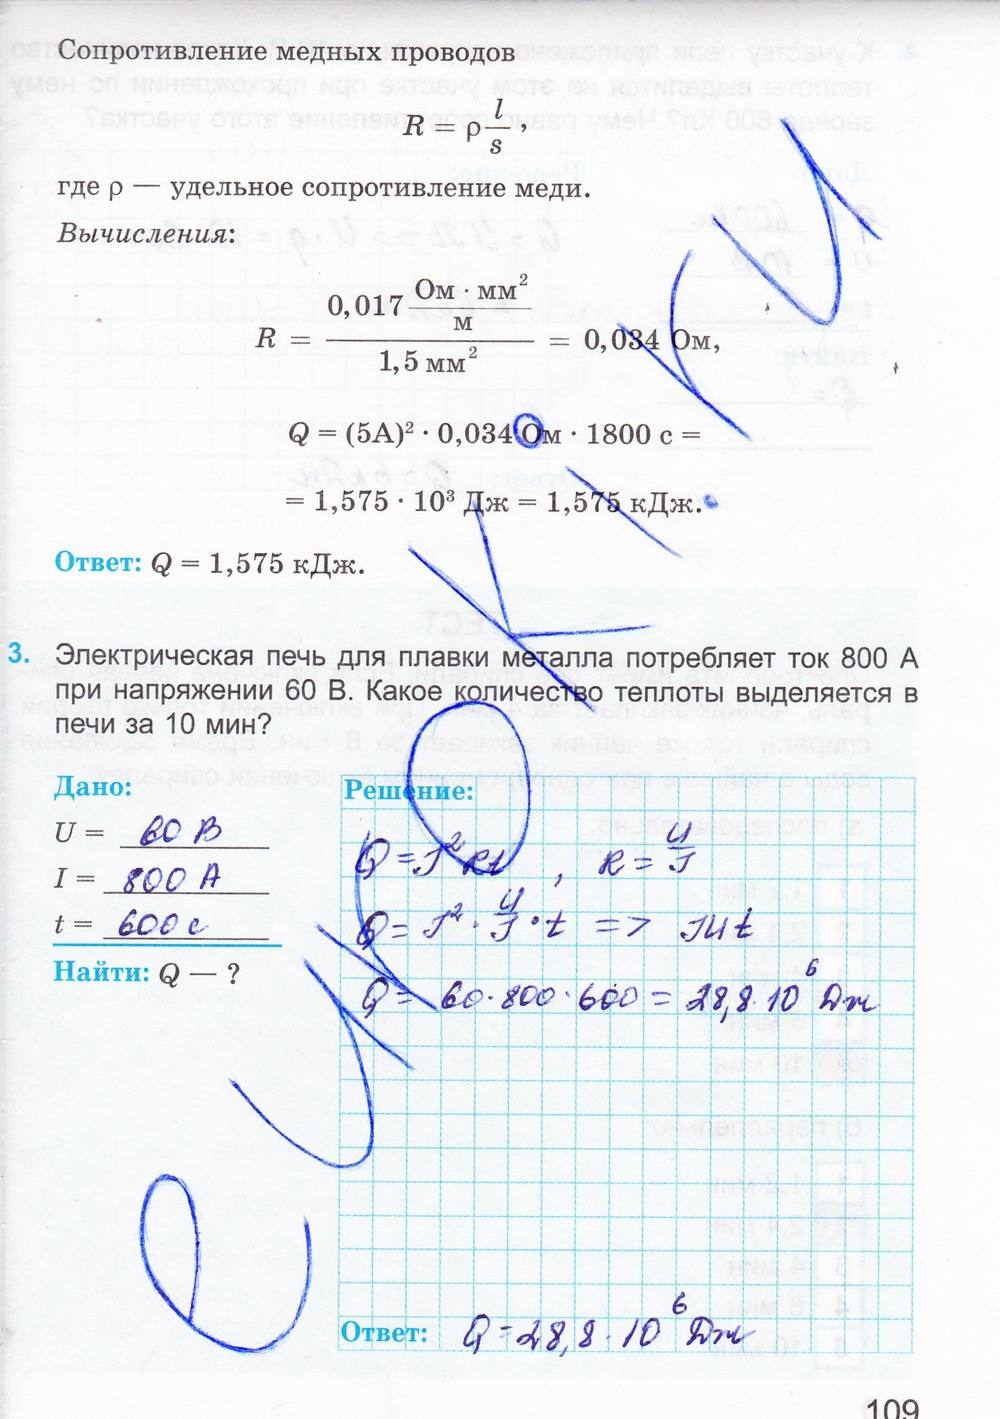 Сопротивление медных проводов
R = ρ l/s,
где ρ — удельное сопротивление меди.
Вычисления:
R = 0,017 Ом · мм²/м / 1,5 мм² = 0,034 Ом,
Q = (5А)² · 0,034 Ом · 1800 с =
= 1,575 · 10³ Дж = 1,575 кДж.
Ответ: Q = 1,575 кДж.
3. Электрическая печь для плавки металла потребляет ток 800 А
при напряжении 60 В. Какое количество теплоты выделяется в
печи за 10 мин?
Дано:
U = 60 В
I = 800 А
t = 600 с
Найти: Q — ?
Решение:
Q = I² Rt , R = U/I
Q = I² · U/I · t => IUt
Q = 60·800·600 = 28,8·10⁶ Дж
Ответ: Q = 28,8 · 10⁶ Дж
109